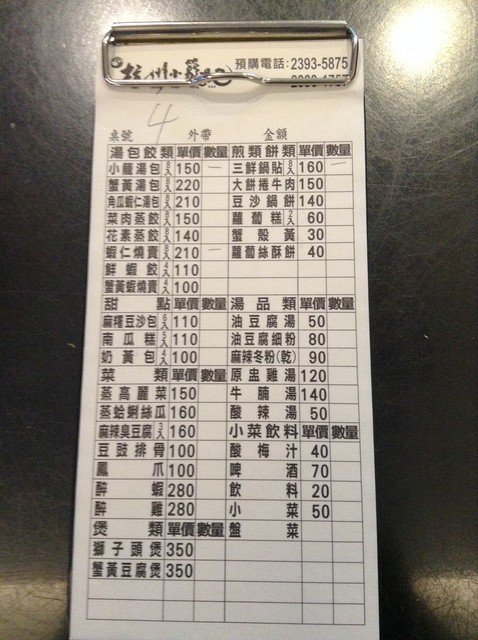 杭州小籠湯包 預購電話:2393-5875
4
桌號 外帶 金額
湯包餃類 單價 數量 煎類餅類 單價 數量
小籠湯包 8入 150 一 三鮮鍋貼 8入 160 一
蟹黃湯包 220 大餅捲牛肉 150
角瓜蝦仁湯包 210 豆沙鍋餅 140
菜肉蒸餃 150 蘿蔔糕 2入 60
花素蒸餃 140 蟹殼黃 30
蝦仁燒賣 210 一 蘿蔔絲酥餅 40
鮮蝦餃 4入 110
蟹黃蝦燒賣 4入 100
甜點 單價 數量 湯品類 單價 數量
麻糬豆沙包 110 油豆腐湯 50
南瓜糕 110 油豆腐細粉 80
奶黃包 4入 100 麻辣冬粉(乾) 90
菜類 單價 數量 原盅雞湯 120
蒸高麗菜 150 牛腩湯 140
蒸蛤蜊絲瓜 160 酸辣湯 50
麻辣臭豆腐 3入 160 小菜飲料 單價 數量
豆豉排骨 100 酸梅汁 40
鳳爪 100 啤酒 70
醉蝦 280 飲料 20
醉雞 280 小菜 50
煲類 單價 數量 盤菜
獅子頭煲 350
蟹黃豆腐煲 350